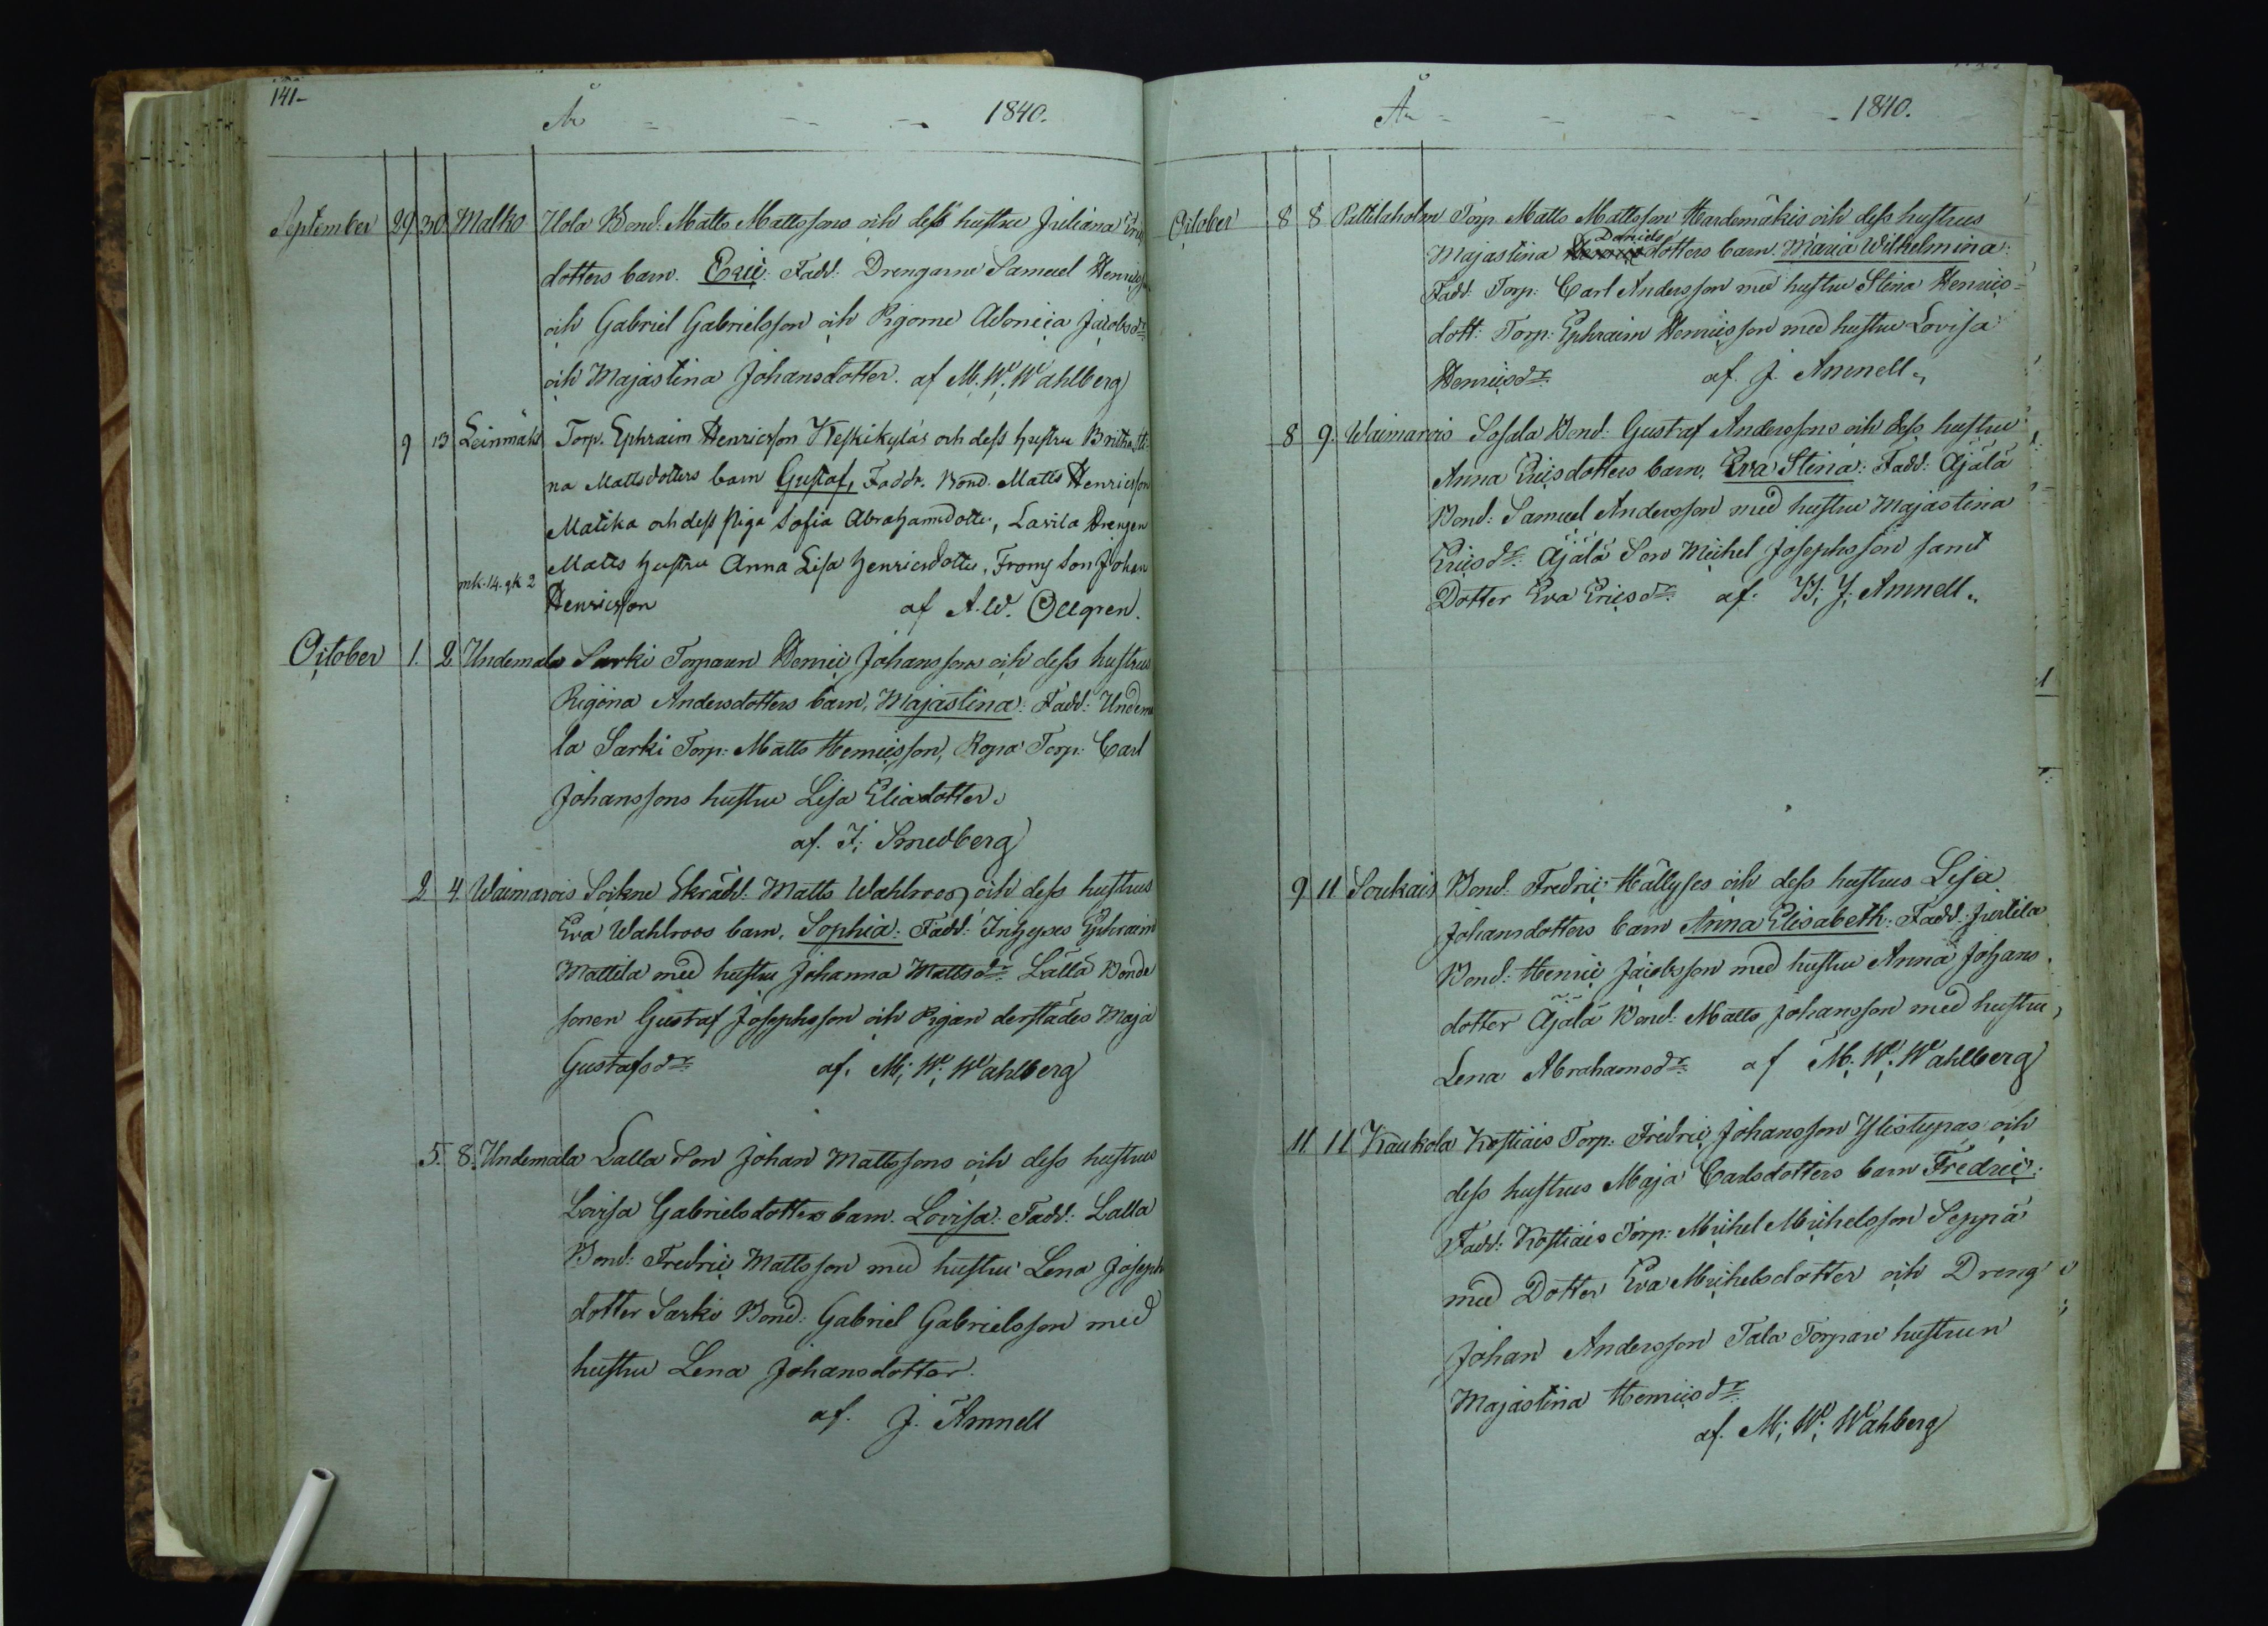 141-
År - - - 1840.
September 29 30 Malko Uola Bond: Matts Mattssons och dess hustru Juliana Erics
dotters barn. Eric: Fadd: Drengarne Samuel Henricsson
och Gabriel Gabrielsson och Pigorne Adoncia Jacobsdr
och Majastina Johansdotter. af M. W. Wahlberg
9 13 Leinmäki Torp. Ephraim Henricsson Keskikyläs och dess hustru Britha Sti-
na Mattsdotters barn Gustaf, Faddr. Bond. Matts Henricsson
Matika och dess Piga Sofia Abrahamsdotter, Lavila Drengen
Matts hustru Anna Lisa Henricsdotter, Son Johan
mk. 14. gk 2 Henricsson af A. W. Ollgren.
October 1. 2 Undemala Sarki Torparen Henric Johanssons och dess hustrus
Rigona Andersdotters barn, Majastina: Fadd: Undema
la Sarki Torp: Matts Henricsson, Ropa Torp: Carl
Johanssons hustru Lisa Eliadotter.
af. J; Smedberg
2 4. Waimarois Sockne Skrädd: Matts Wahlroos, och dess hustrus
Eva Wahlroos barn. Sophia: Fadd: Ephraim
Mattila med hustru Johanna Mattsdr Lalla Bonde
sonen Gustaf Josephsson och Pigan derstädes Maja
Gustafsdr af. M; W; Wahlberg
5. 8. Undemala Lalla Son Johan Mattssons och dess hustrus
Lovisa Gabrielsdotters barn. Lovisa: Fadd: Lalla
Bond: Fredric Mattsson med hustru Lena Joseph
dotter Sarki Bond: Gabriel Gabrielsson med
hustru Lena Johansdotter.
af. J. Amnell
År - - - - 1840.
October 8 8 Paltilaholm Torp. Matts Mattsson Hardemäkis och dess hustrus
Daniels
Majastina dotters barn. Maria Wilhelmina:
Fadd: Torp: Carl Andersson med hustru Stina Henrics-
dott: Torp: Ephraim Henricsson med hustru Lovisa
Henricsdr af. J. Amnell.
8 9. Waimarois Sosala Bond: Gustaf Anderssons och dess hustru
Anna Ericsdotters barn, Eva Stina: Fadd: Äjälä
Bond: Samuel Andersson med hustru Majastina
Ericsdr Äjälä Son Michel Josephsson samt
Dotter Eva Ericsdr af. J; Amnell.
9 11 Soukais Bond: Fredric Hällyses och dess hustrus Lisa
Johansdotters barn Anna Elisabeth: Fadd: Juttila
Bond: Henric Jacobsson med hustru Anna Johans
dotter Äjälä Bond: Matts Johansson med hustru
Lena Abrahamsdr af M. W. Wahlberg
11 11 Kaukola Kostiais Torp: Fredric Johansson Ylistupas och
dess hustrus Maja Carlsdotters barn Fredric:
Fadd: Kostiais Torp: Michel Michelsson Seppä
med Dotter Eva Michelsdotter och Dreng
Johan Andersson Tala Torpare hustrun
Majastina Henricsdr
af. M; W; Wahlberg